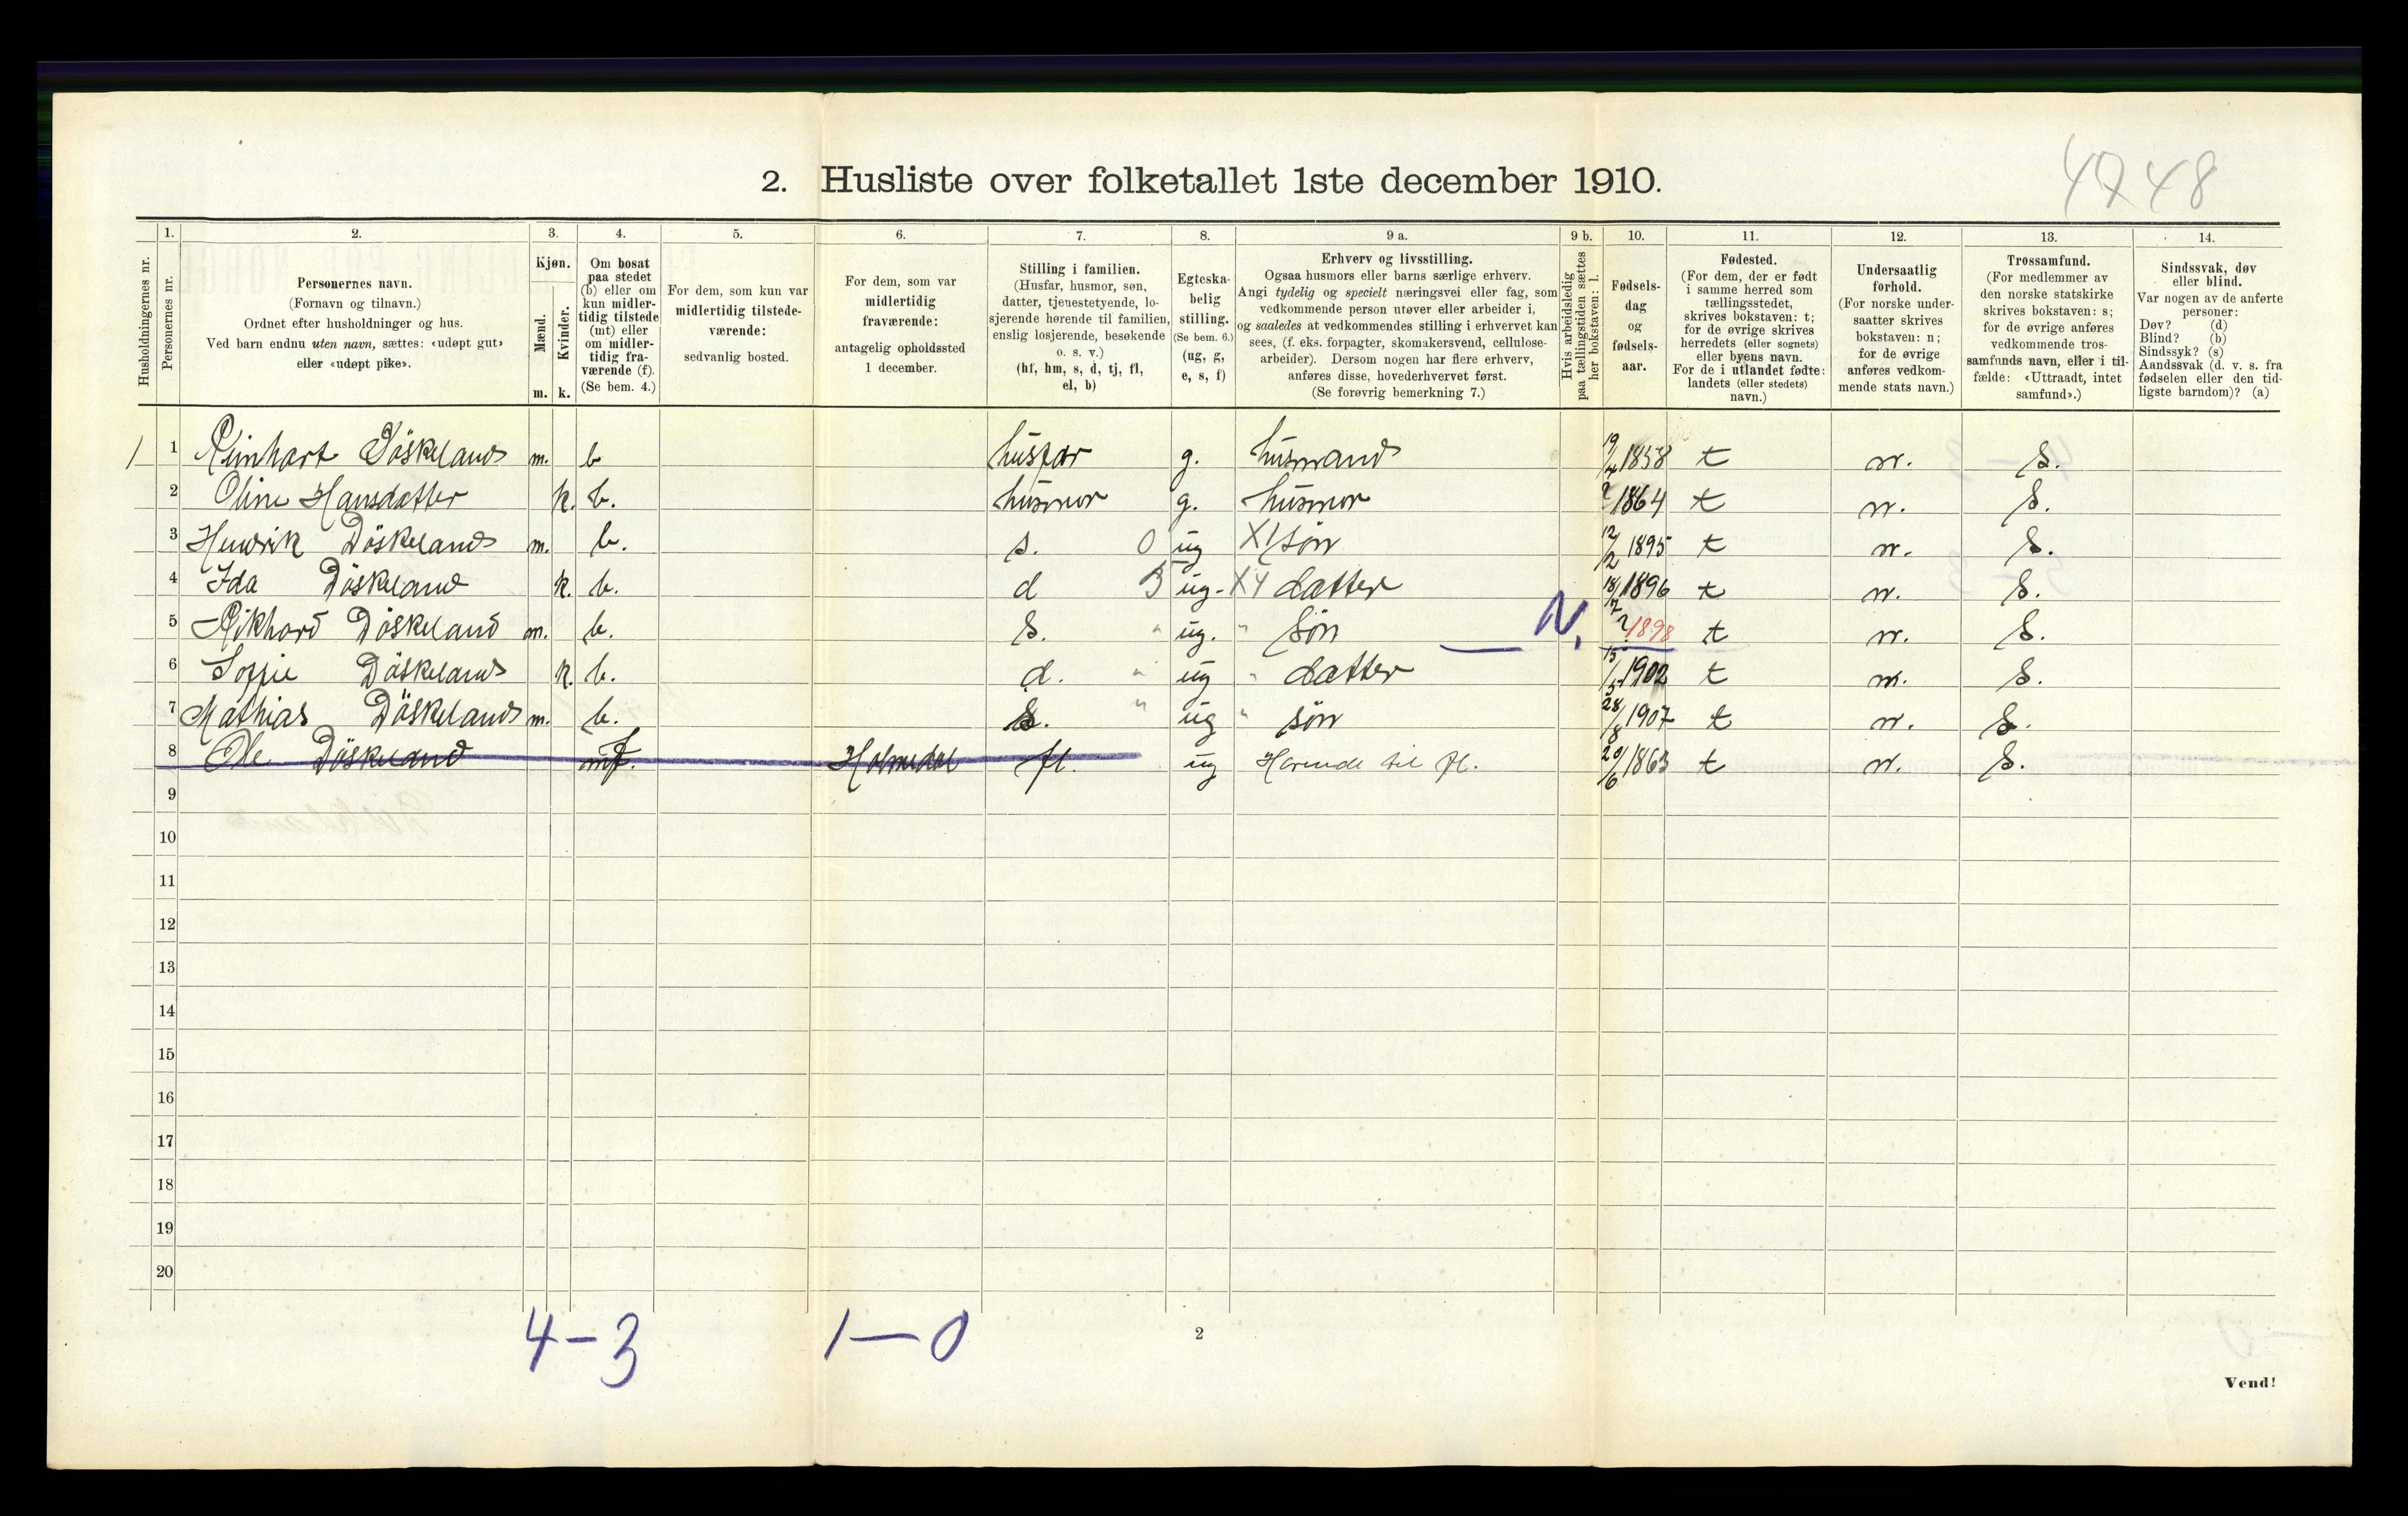 4748
2. Husliste over folketallet 1ste december 1910.
1. 2. 3. 4. 5. 6. 7. 8. 9 a. 9 b. 10. 11. 12. 13. 14.
Husholdningernes nr.
Personernes nr.
Personernes navn.
(Fornavn og tilnavn.)
Ordnet efter husholdninger og hus.
Ved barn endnu uten navn, sættes: «udøpt gut»
eller «udøpt pike».
Kjøn.
Mænd.
Kvinder.
m. k.
Om bosat
paa stedet
(b) eller om
kun midler-
tidig tilstede
(mt) eller
om midler-
tidig fra-
værende (f).
(Se bem. 4.)
For dem, som kun var
midlertidig tilstede-
værende:
sedvanlig bosted.
For dem, som var
midlertidig
fraværende:
antagelig opholdssted
1 december.
Stilling i familien.
(Husfar, husmor, søn,
datter, tjenestetyende, lo-
sjerende hørende til familien,
enslig losjerende, besøkende
o. s. v.)
(hf, hm, s, d, tj, fl,
el, b)
Egteska-
belig
stilling.
(Se bem. 6.)
(ug, g,
e, s, f)
Erhverv og livsstilling.
Ogsaa husmors eller barns særlige erhverv.
Angi tydelig og specielt næringsvei eller fag, som
vedkommende person utøver eller arbeider i,
og saaledes at vedkommendes stilling i erhvervet kan
sees, (f. eks. forpagter, skomakersvend, cellulose-
arbeider). Dersom nogen har flere erhverv,
anføres disse, hovederhvervet først.
(Se forøvrig bemerkning 7.)
Hvis arbeidsledig
paa tællingstiden sættes
her bokstaven: l.
Fødsels-
dag
og
fødsels-
aar.
Fødested.
(For dem, der er født
i samme herred som
tællingsstedet,
skrives bokstaven: t;
for de øvrige skrives
herredets (eller sognets)
eller byens navn.
For de i utlandet fødte:
landets (eller stedets)
navn.)
Undersaatlig
forhold.
(For norske under-
saatter skrives
bokstaven: n;
for de øvrige
anføres vedkom-
mende stats navn.)
Trossamfund.
(For medlemmer av
den norske statskirke
skrives bokstaven: s;
for de øvrige anføres
vedkommende tros-
samfunds navn, eller i til-
fælde: «Uttraadt, intet
samfund».)
Sindssvak, døv
eller blind.
Var nogen av de anførte
personer:
Døv? (d)
Blind? (b)
Sindssyk? (s)
Aandssvak (d. v. s. fra
fødselen eller den tid-
ligste barndom)? (a)
1 1 Reinhart Döskeland m. b husfar g. husmand 19/4 1858 t n. S.
2 Oline Hansdatter k. b. husmor g. husmor ? 1864 t n. S.
3 Henrik Döskeland m. b. s. 0 ug XI søn 12/2 1895 t n. S.
4 Ida Döskeland k. b. d 3 ug. XI datter 18/12 1896 t n. S.
5 Rikhard Döskeland m. b. S. " ug. " Søn N, ? 1898 t n. S.
6 Soffie Döskeland k. b. d. " ug " datter 15/5 1902 t n. S.
7 Mathias Döskeland m. b. S. " ug " søn 28/8 1907 t n. S.
8 Ole Döskeland mf. Holmedal fl. ug Hørende til fl. 20/6 1863 t n. S.
9
10
11
12
13
14
15
16
17
18
19
20
4 - 3 1 — 0
2
Vend!